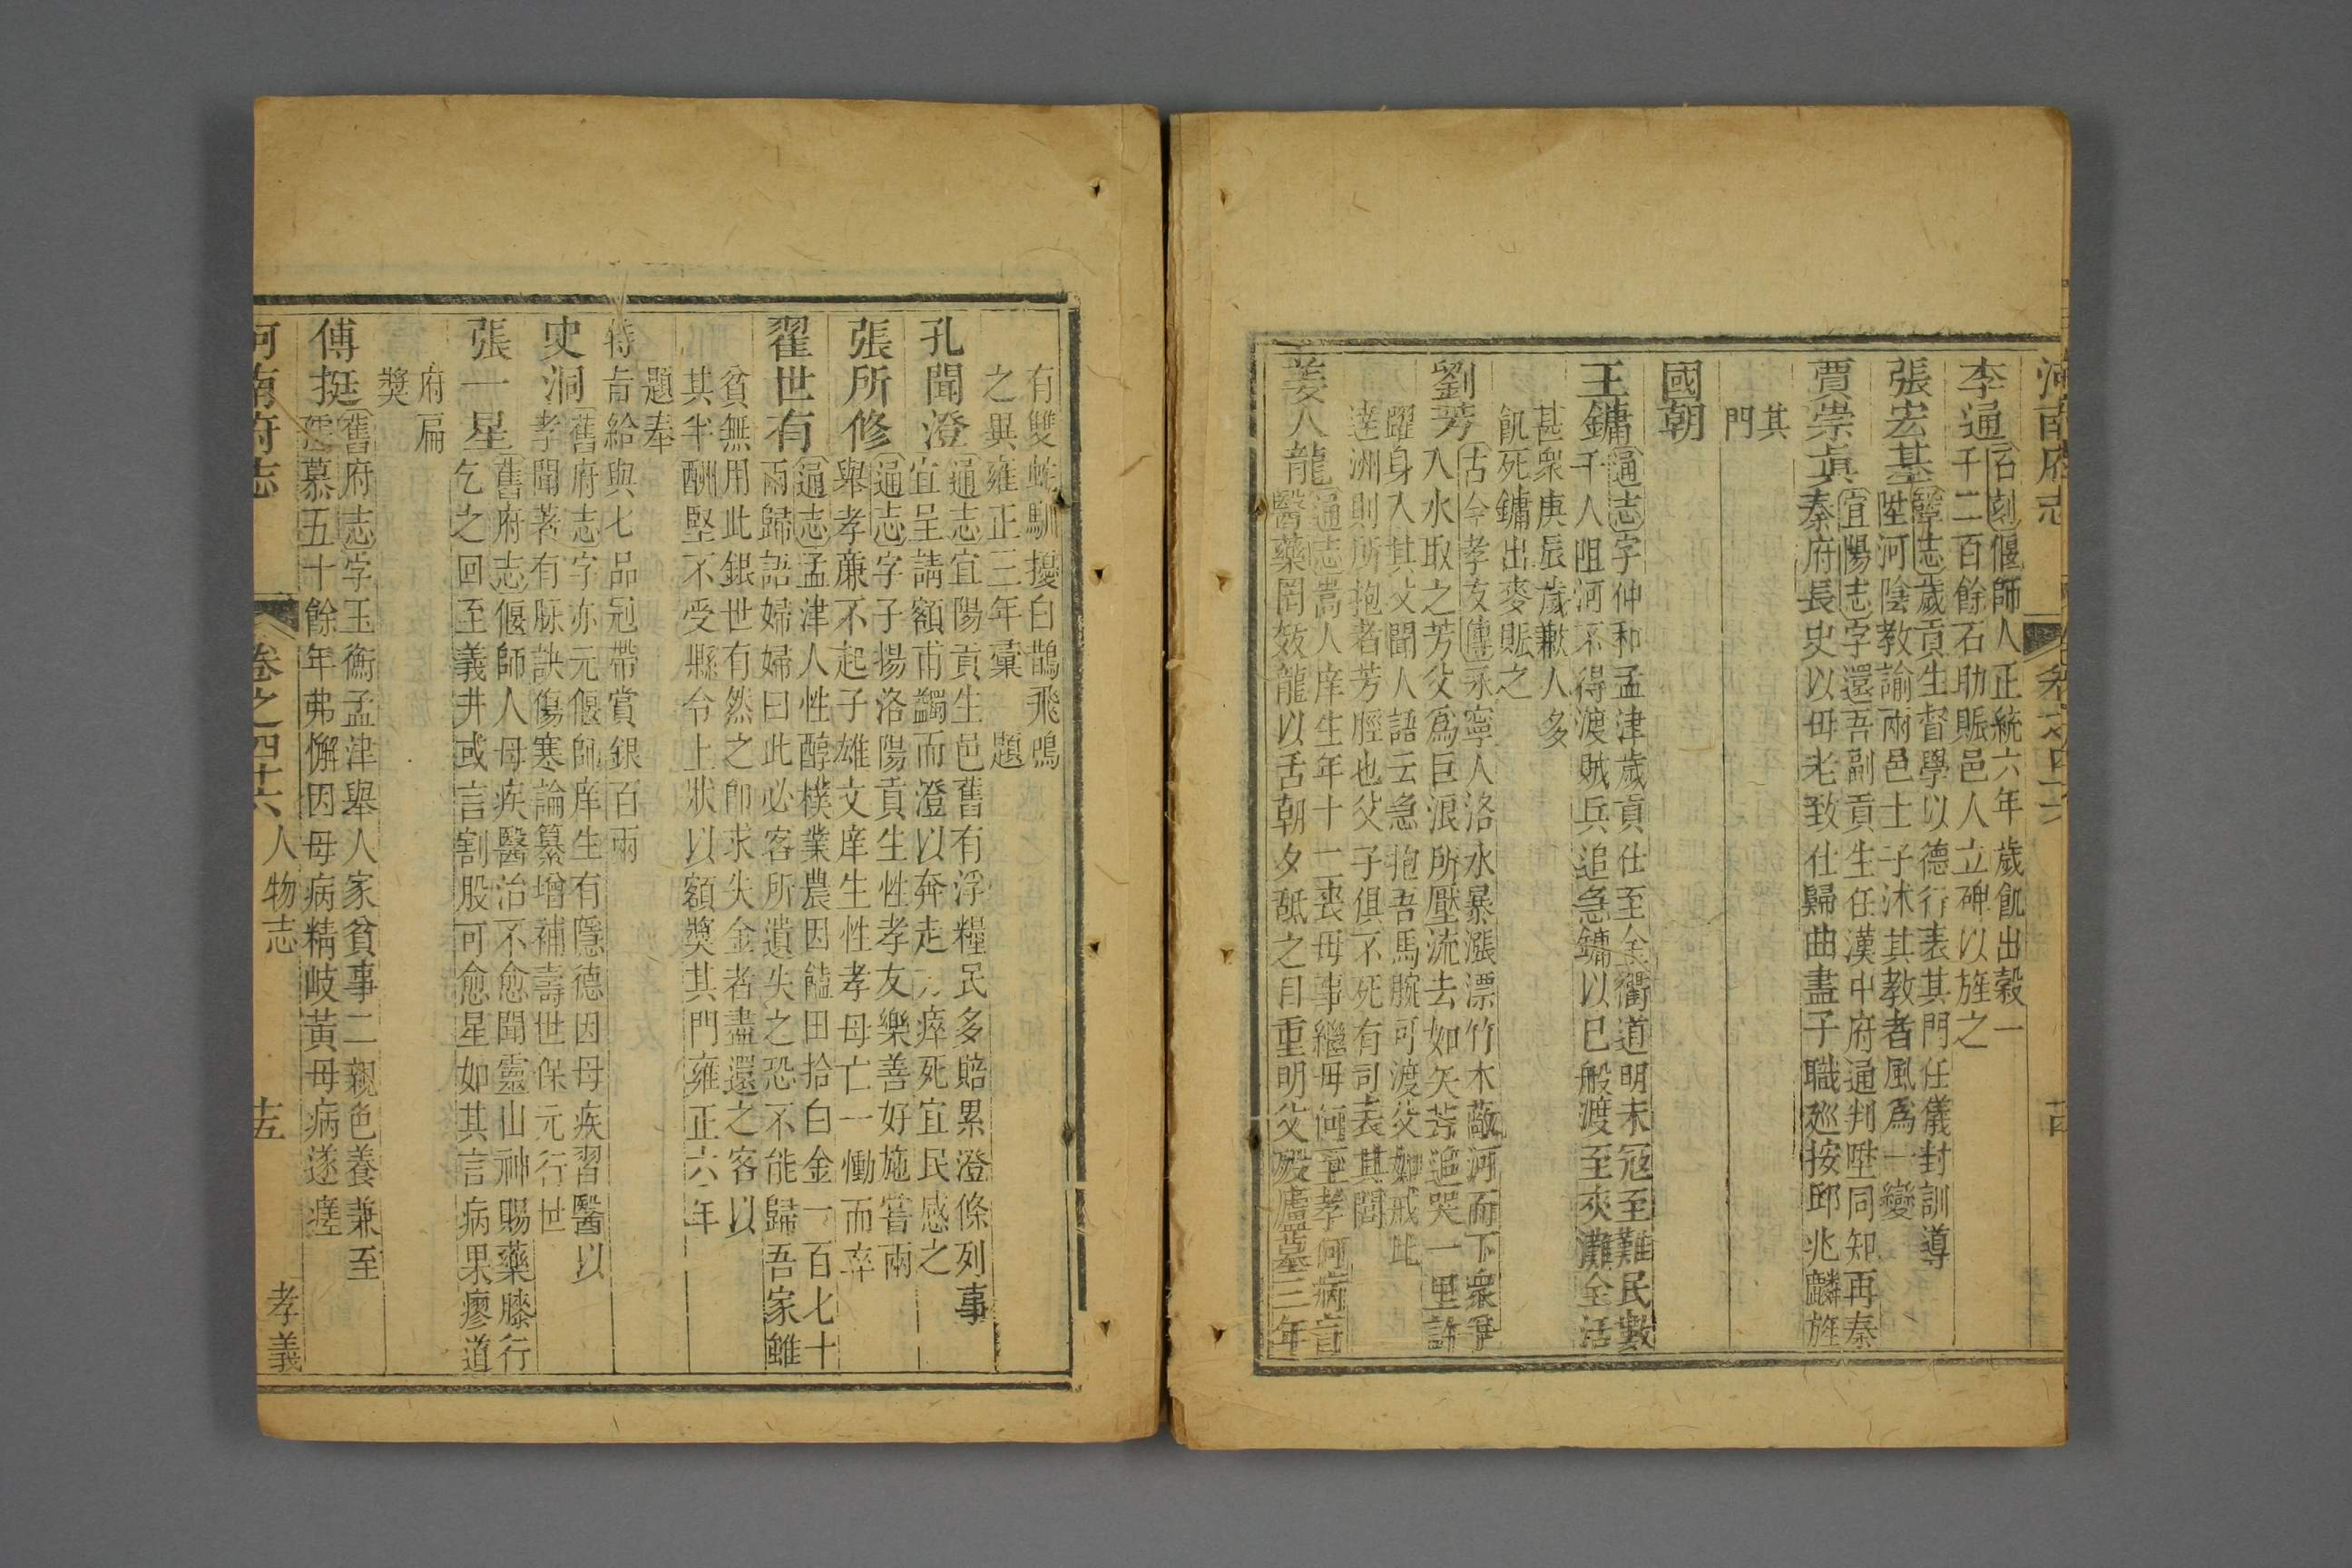 河南府志
卷之四十六
李通石刻偃師人正統六年歲飢出穀一
千二百餘石助賑邑人立碑以旌之
張宏基鞏志歲貢生督學以德行表其門任儀封訓導
陞河陰教諭兩邑士子沭其教者風爲一變
賈崇貞宜陽志字還吾副貢生任漢中府通判陞同知再秦
秦府長史以母老致仕歸曲盡子職廵按邱兆麟旌
其
門
國朝
王鏞通志字仲和孟津歲貢仕至金衢道明末寇至難民數
千人阻河不得渡賊兵追急鏞以巳般渡至夾灘全活
甚衆庚辰歲歉人多
飢死鏞出麥賑之
劉芳古今孝友傳永寧人洛水暴漲漂竹木蔽河而下衆爭
入水取之芳父爲巨浪所壓流去如矢芳追哭一里許
躍身入其父聞人語云急抱吾馬腕可渡父如戒比
達洲則所抱者芳脛也父子俱不死有司表其閭
姜八龍通志嵩人庠生年十二喪母事繼母何至孝何病盲
醫藥罔效龍以舌朝夕舐之目重明父歿廬墓三年
有雙蛇馴擾白鵲飛鳴
之異雍正三年彙題
孔聞澄通志宜陽貢生邑舊有浮糧民多賠累澄條列事
宜呈請額甫蠲而澄以奔走瘁死宜民感之
張所修通志字子揚洛陽貢生性孝友樂善好施嘗兩
舉孝廉不起子雄文庠生性孝母亡一慟而卒
翟世有通志孟津人性醇樸業農因饁田拾白金一百七十
兩歸語婦婦曰此必客所遺失之恐不能歸吾家雖
貧無用此銀世有然之卽求失金者盡還之客以
其半酬堅不受縣令上狀以額獎其門雍正六年
題奉
特㫖給與七品冠帶賞銀百兩
史洞舊府志字亦元偃師庠生有隱德因母疾習醫以
孝聞著有脉訣傷寒論纂增補壽世保元行世
張一星舊府志偃師人母疾醫治不愈聞靈山神賜藥膝行
乞之回至義井或言割股可愈星如其言病果瘳道
府扁
獎
傅挺舊府志字玉衡孟津舉人家貧事二親色養兼至
孺慕五十餘年弗懈因母病精岐黄母病遂痊
河南府志
卷之四十六 人物志
孝義